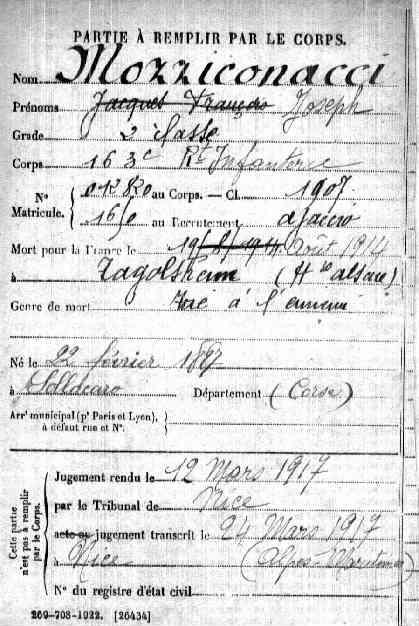 PARTIE À REMPLIR PAR LE CORPS.
Nom Mozziconacci
Prénoms Jacques François Joseph
Grade 2e classe
Corps 163e Rt Infanterie
N° Matricule. 012820 au Corps. — Cl. 1907
1650 au Recrutement ajaccio
Mort pour la France le 19/8/1914 Août 1914
à Zagolsheim (Hte alsace)
Genre de mort Tué à l'ennemi
Né le 22 février 1887
à Département (Corse)
Arrt municipal (pr Paris et Lyon),
à défaut rue et N°.
Cette partie n'est pas à remplir par le Corps.
Jugement rendu le 12 Mars 1917
par le Tribunal de Nice
acte ou jugement transcrit le 24 Mars 1917
à Nice (Alpes-Maritimes)
N° du registre d'état civil
269-708-1922. [26434]